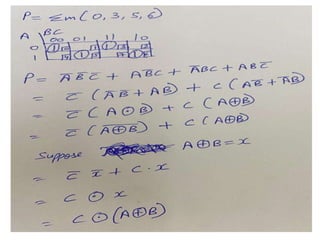 P = Σm(0,3,5,6)
A BC 00 01 11 10
0 1 1
1 1 1
P = A̅B̅C̅ + ABC̅ + A̅BC + AB̅C
= C̅(A̅B̅ + AB) + C(AB̅ + A̅B)
= C̅(A⊙B) + C(A⊕B)
= C̅(A⊕B)̅ + C(A⊕B)
Suppose A⊕B = x
= C̅ x̅ + C·x
= C ⊙ x
= C ⊙ (A⊕B)